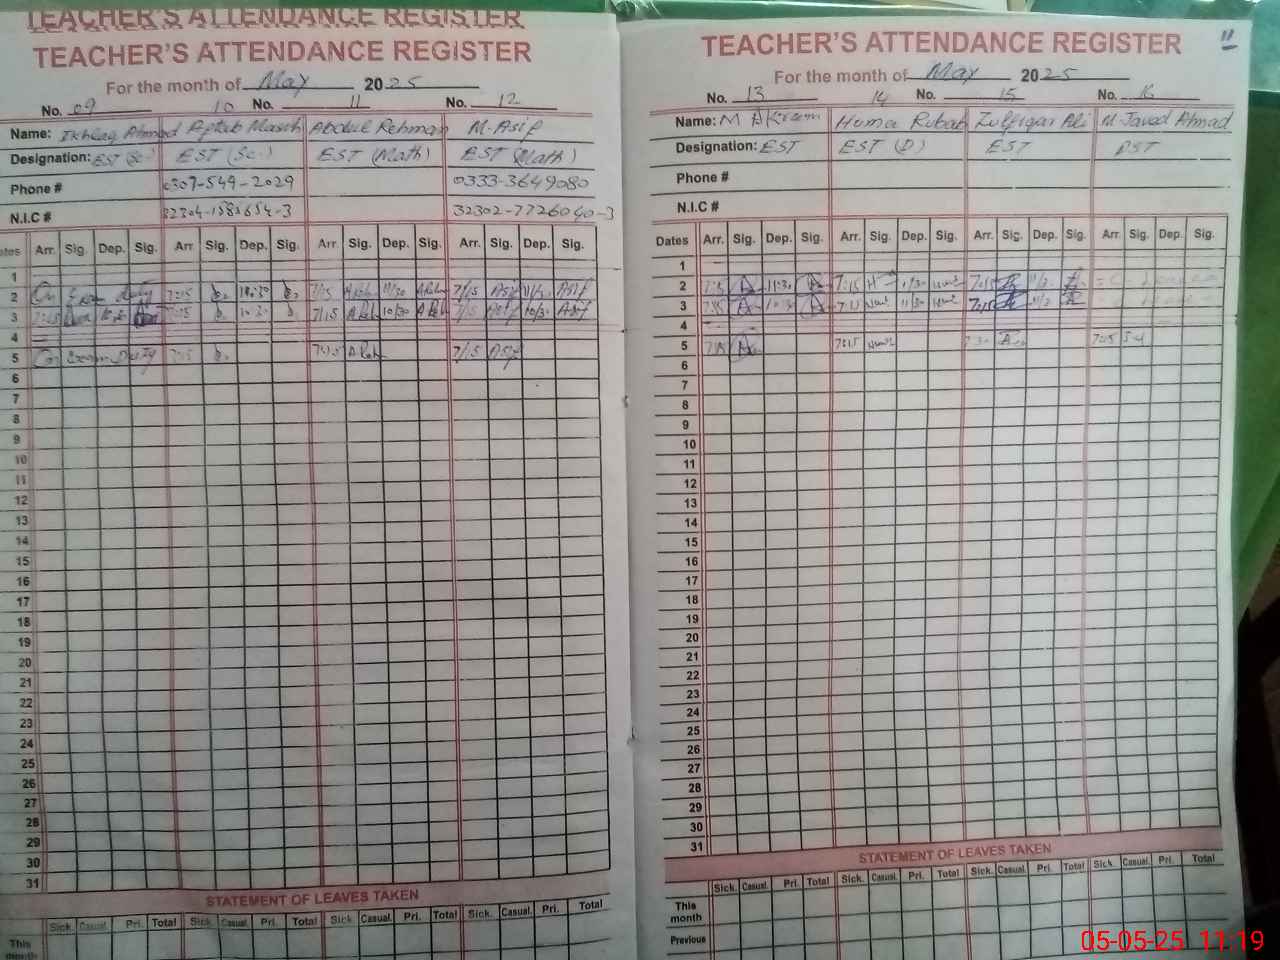 TEACHER'S ATTENDANCE REGISTER
TEACHER'S ATTENDANCE REGISTER
For the month of May 2025
No. 09 10 No. 11 No. 12
Name: Ikhlaq Ahmad Aftab Masih Abdul Rehman M. Asif
Designation: EST (Sc.) EST (Sc.) EST (Math) EST (Math)
Phone # 0307-549-2029 0333-3649080
N.I.C # 32304-1582654-3 32302-7726040-3
Dates Arr. Sig. Dep. Sig. Arr Sig. Dep. Sig. Arr. Sig. Dep. Sig. Arr. Sig. Dep. Sig.
1
2 On Exam duty 7:15 10:30 7/15 A Reh 11/30 A Reh 7/15 Asif 11/30 Asif
3 7:15 7:15 10:30 7/15 A Reh 10/30 A Reh 7/15 Asif 10/30 Asif
4
5 On Exam Duty 7:15 7:15 A Reh 7/15 Asif
6
7
8
9
10
11
12
13
14
15
16
17
18
19
20
21
22
23
24
25
26
27
28
29
30
31
STATEMENT OF LEAVES TAKEN
Sick. Casual. Pri. Total Sick. Casual. Pri. Total Sick. Casual. Pri. Total Sick. Casual. Pri. Total
This
month
TEACHER'S ATTENDANCE REGISTER 11
For the month of May 2025
No. 13 14 No. 15 No. 16
Name: M Akram Homa Rubab Zulfiqar Ali M. Javed Ahmad
Designation: EST EST (D) EST PST
Phone #
N.I.C #
Dates Arr. Sig. Dep. Sig. Arr. Sig. Dep. Sig. Arr. Sig. Dep. Sig. Arr. Sig. Sig.
1
2 7:15 11:30 7:15 11/30 7:15
3 7:15 10:30 7:15 11/30 7:15
4
5 7:15 7:15 7:30 7:15
6
7
8
9
10
11
12
13
14
15
16
17
18
19
20
21
22
23
24
25
26
27
28
29
30
31
STATEMENT OF LEAVES TAKEN
Sick. Casual. Pri. Total Sick. Casual. Pri. Total Sick. Casual. Pri. Total Sick. Casual. Pri. Total
This
month
Previous
05-05-25 11:19